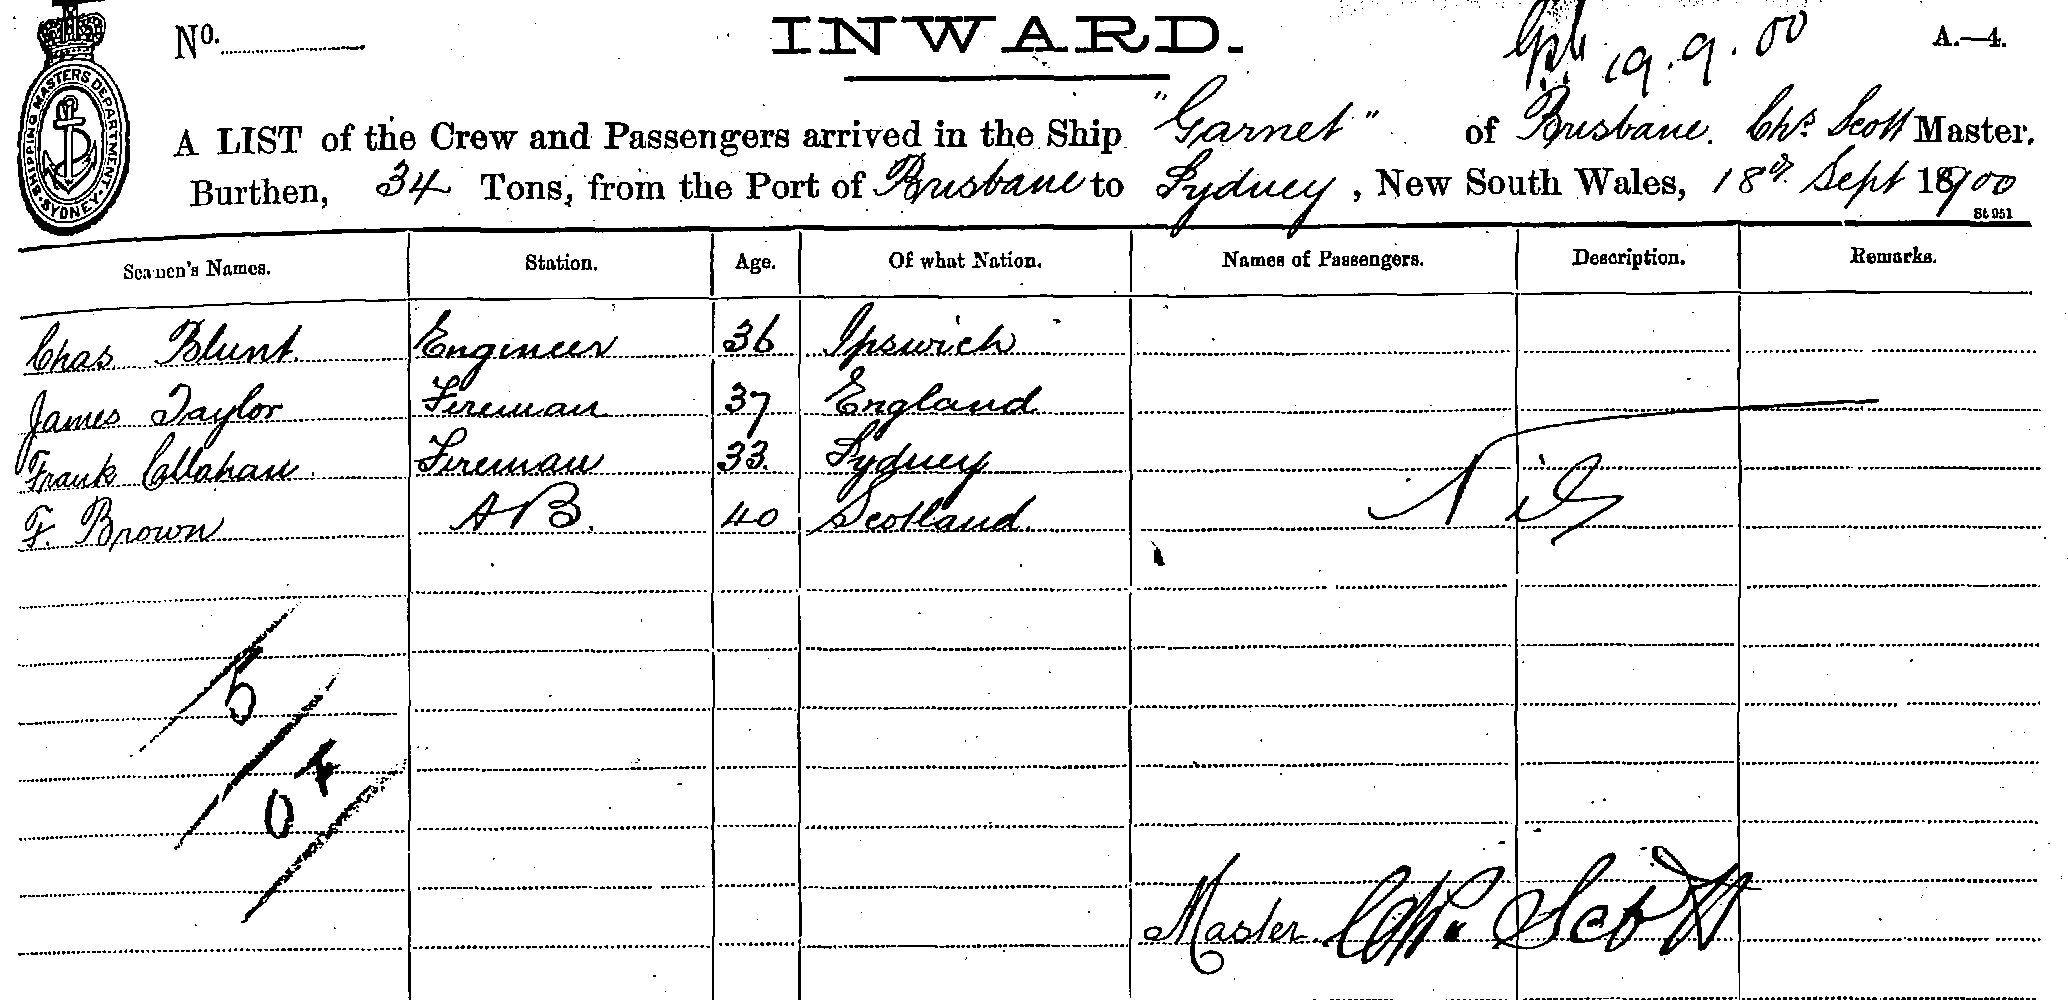 SHIPPING MASTERS DEPARTMENT. SYDNEY.
No.
INWARD.
19.9.00
A.—4.
A LIST of the Crew and Passengers arrived in the Ship "Garnet" of Brisbane. Chs. Scott Master.
Burthen, 34 Tons, from the Port of Brisbane to Sydney, New South Wales, 18th Sept 1900
St 951
Seamen's Names. Station. Age. Of what Nation. Names of Passengers. Description. Remarks.
Chas. Blunt. Engineer 36 Ipswich
James Taylor Fireman 37 England
Frank Callahan. Fireman 33. Sydney
F. Brown AB. 40 Scotland.
Nil
5
04
Master. Chs. Scott